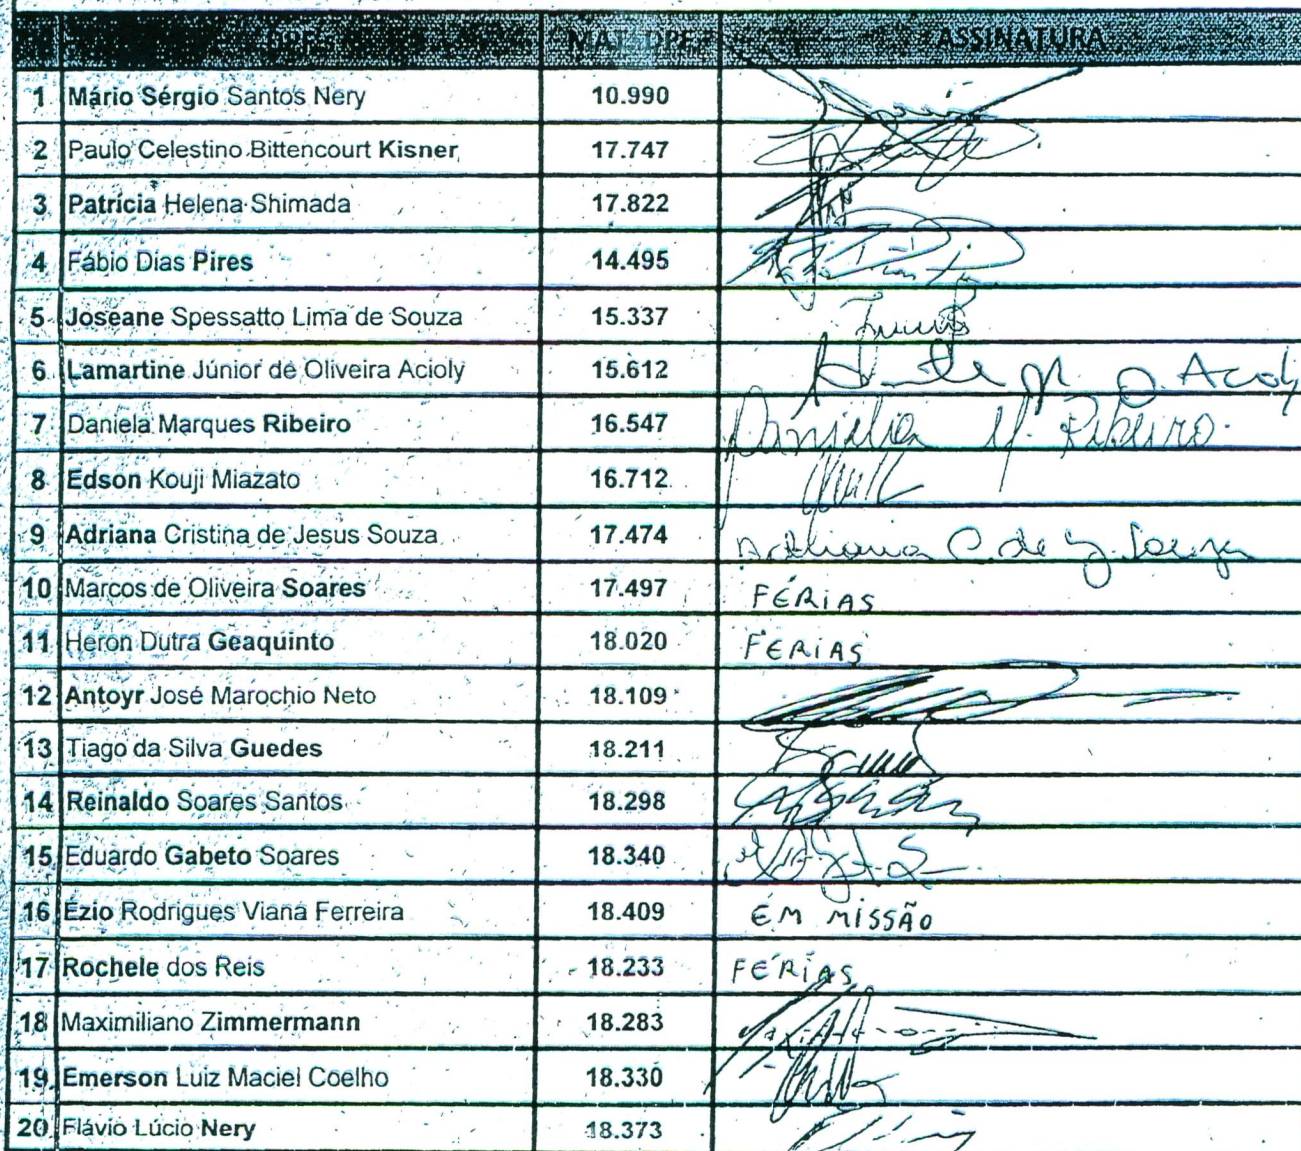 DPF MAT. DPF ASSINATURA
1 Mário Sérgio Santos Nery 10.990
2 Paulo Celestino Bittencourt Kisner 17.747
3 Patrícia Helena Shimada 17.822
4 Fábio Dias Pires 14.495
5 Joseane Spessatto Lima de Souza 15.337
6 Lamartine Júnior de Oliveira Acioly 15.612
7 Daniela Marques Ribeiro 16.547 Daniella M. Ribeiro
8 Edson Kouji Miazato 16.712
9 Adriana Cristina de Jesus Souza 17.474 Adriana C. de J. Souza
10 Marcos de Oliveira Soares 17.497 FÉRIAS
11 Heron Dutra Geaquinto 18.020 FÉRIAS
12 Antoyr José Marochio Neto 18.109
13 Tiago da Silva Guedes 18.211
14 Reinaldo Soares Santos 18.298
15 Eduardo Gabeto Soares 18.340
16 Ézio Rodrigues Viana Ferreira 18.409 EM MISSÃO
17 Rochele dos Reis 18.233 FÉRIAS
18 Maximiliano Zimmermann 18.283
19 Emerson Luiz Maciel Coelho 18.330
20 Flávio Lúcio Nery 18.373